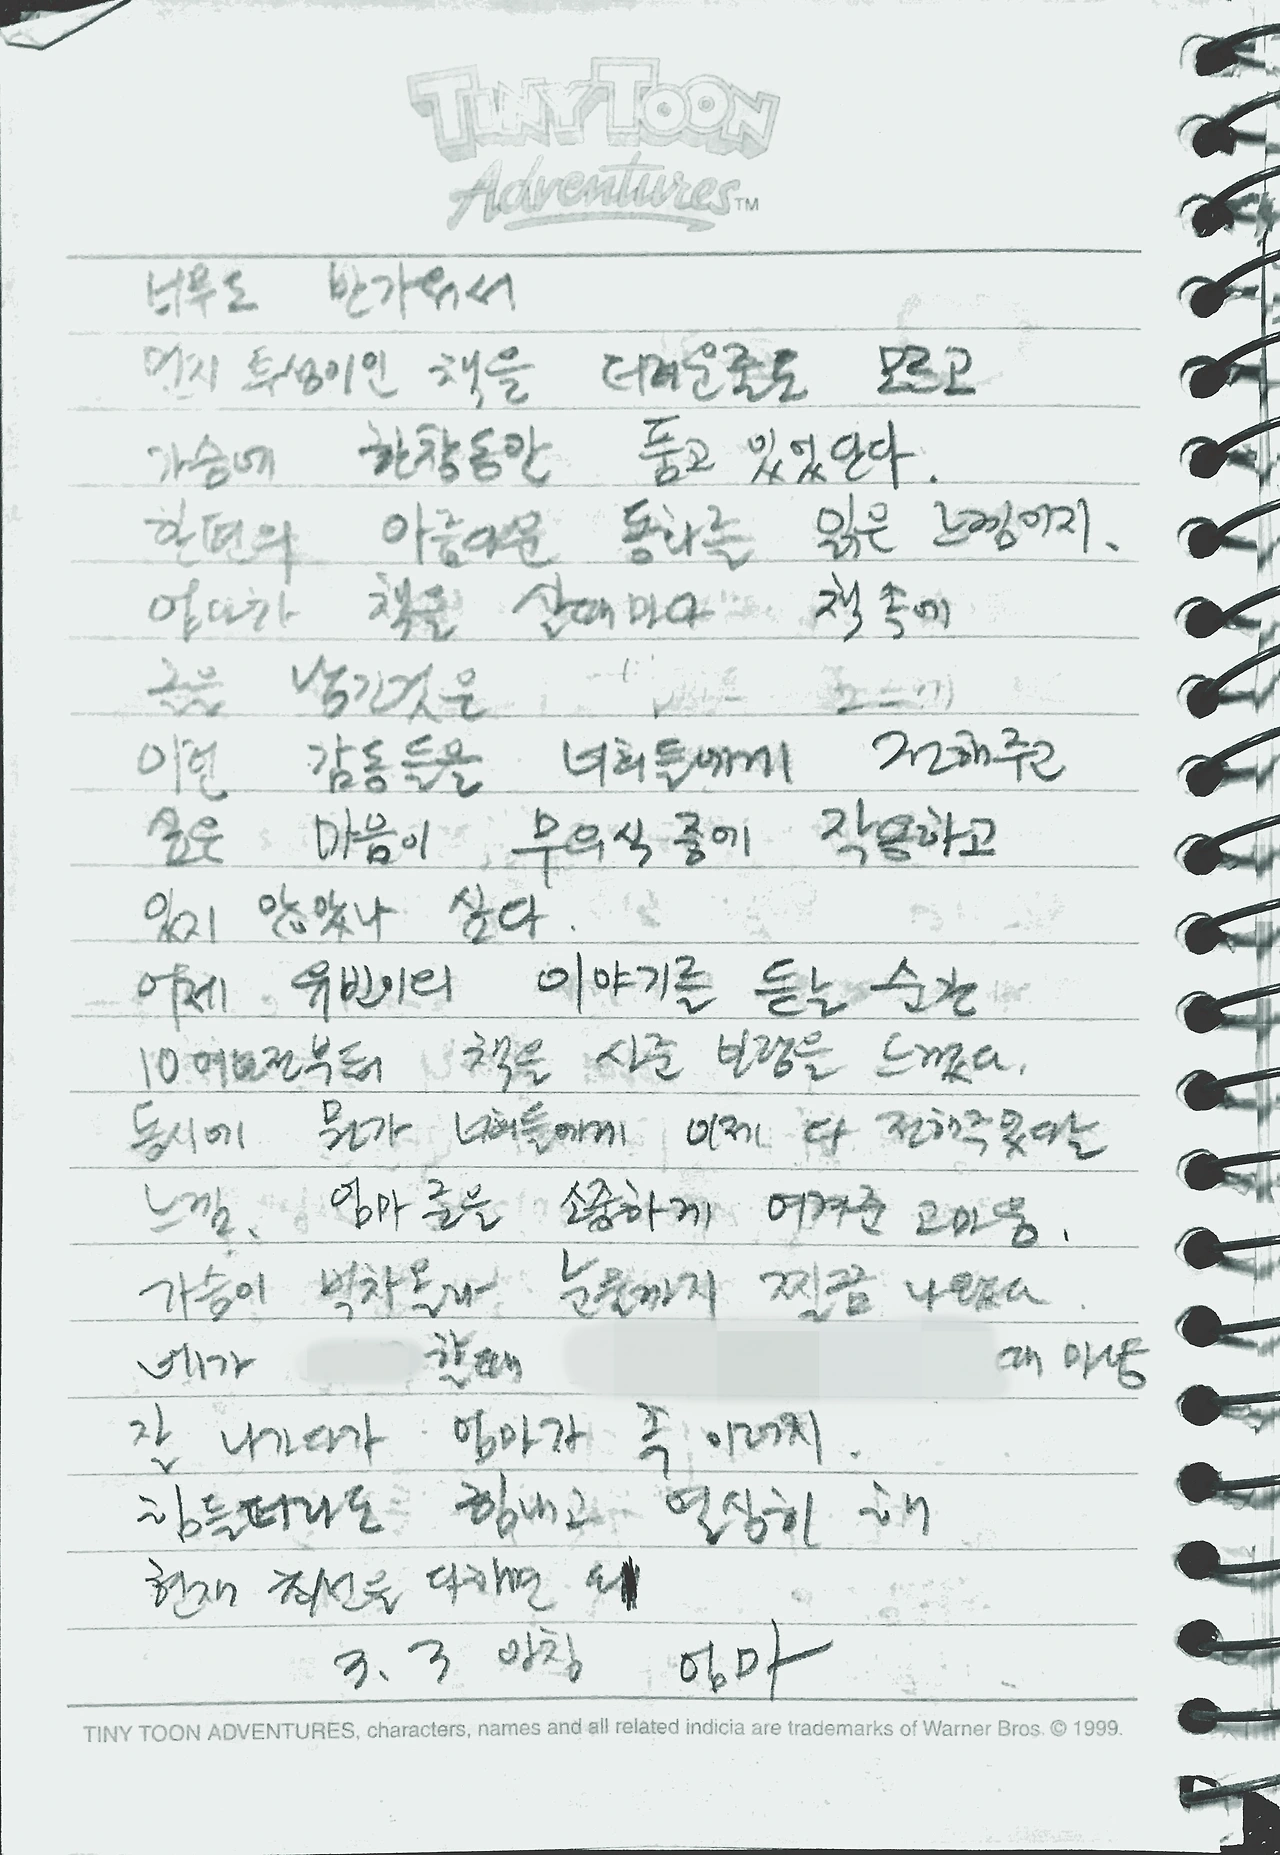 TINY TOON
Adventures™
너무도 반가워서
먼지 투성이인 책을 더러운줄도 모르고
가슴에 한참동안 품고 있었단다.
한편의 아름다운 동화를 읽은 느낌이지.
엄마가 책을 살때마다 책 속에
글을 남긴것은
이런 감동들을 너희들에게 전해주고
싶은 마음이 무의식중에 작용하고
있지 않았나 싶다.
어제 유빈이의 이야기를 듣는 순간
10여년전부터 책을 사준 보람을 느꼈다.
동시에 뭔가 너희들에게 이제 다 전해주었다는
느낌. 엄마 글을 소중하게 여겨준 고마움.
가슴이 벅차올라 눈물까지 찔끔 나왔다.
네가 할때
잘 나가다가 엄마가 꼭 이러지.
힘들더라도 힘내고 열심히 해
현재 최선을 다하면 돼
3. 3 아침 엄마
TINY TOON ADVENTURES, characters, names and all related indicia are trademarks of Warner Bros. © 1999.